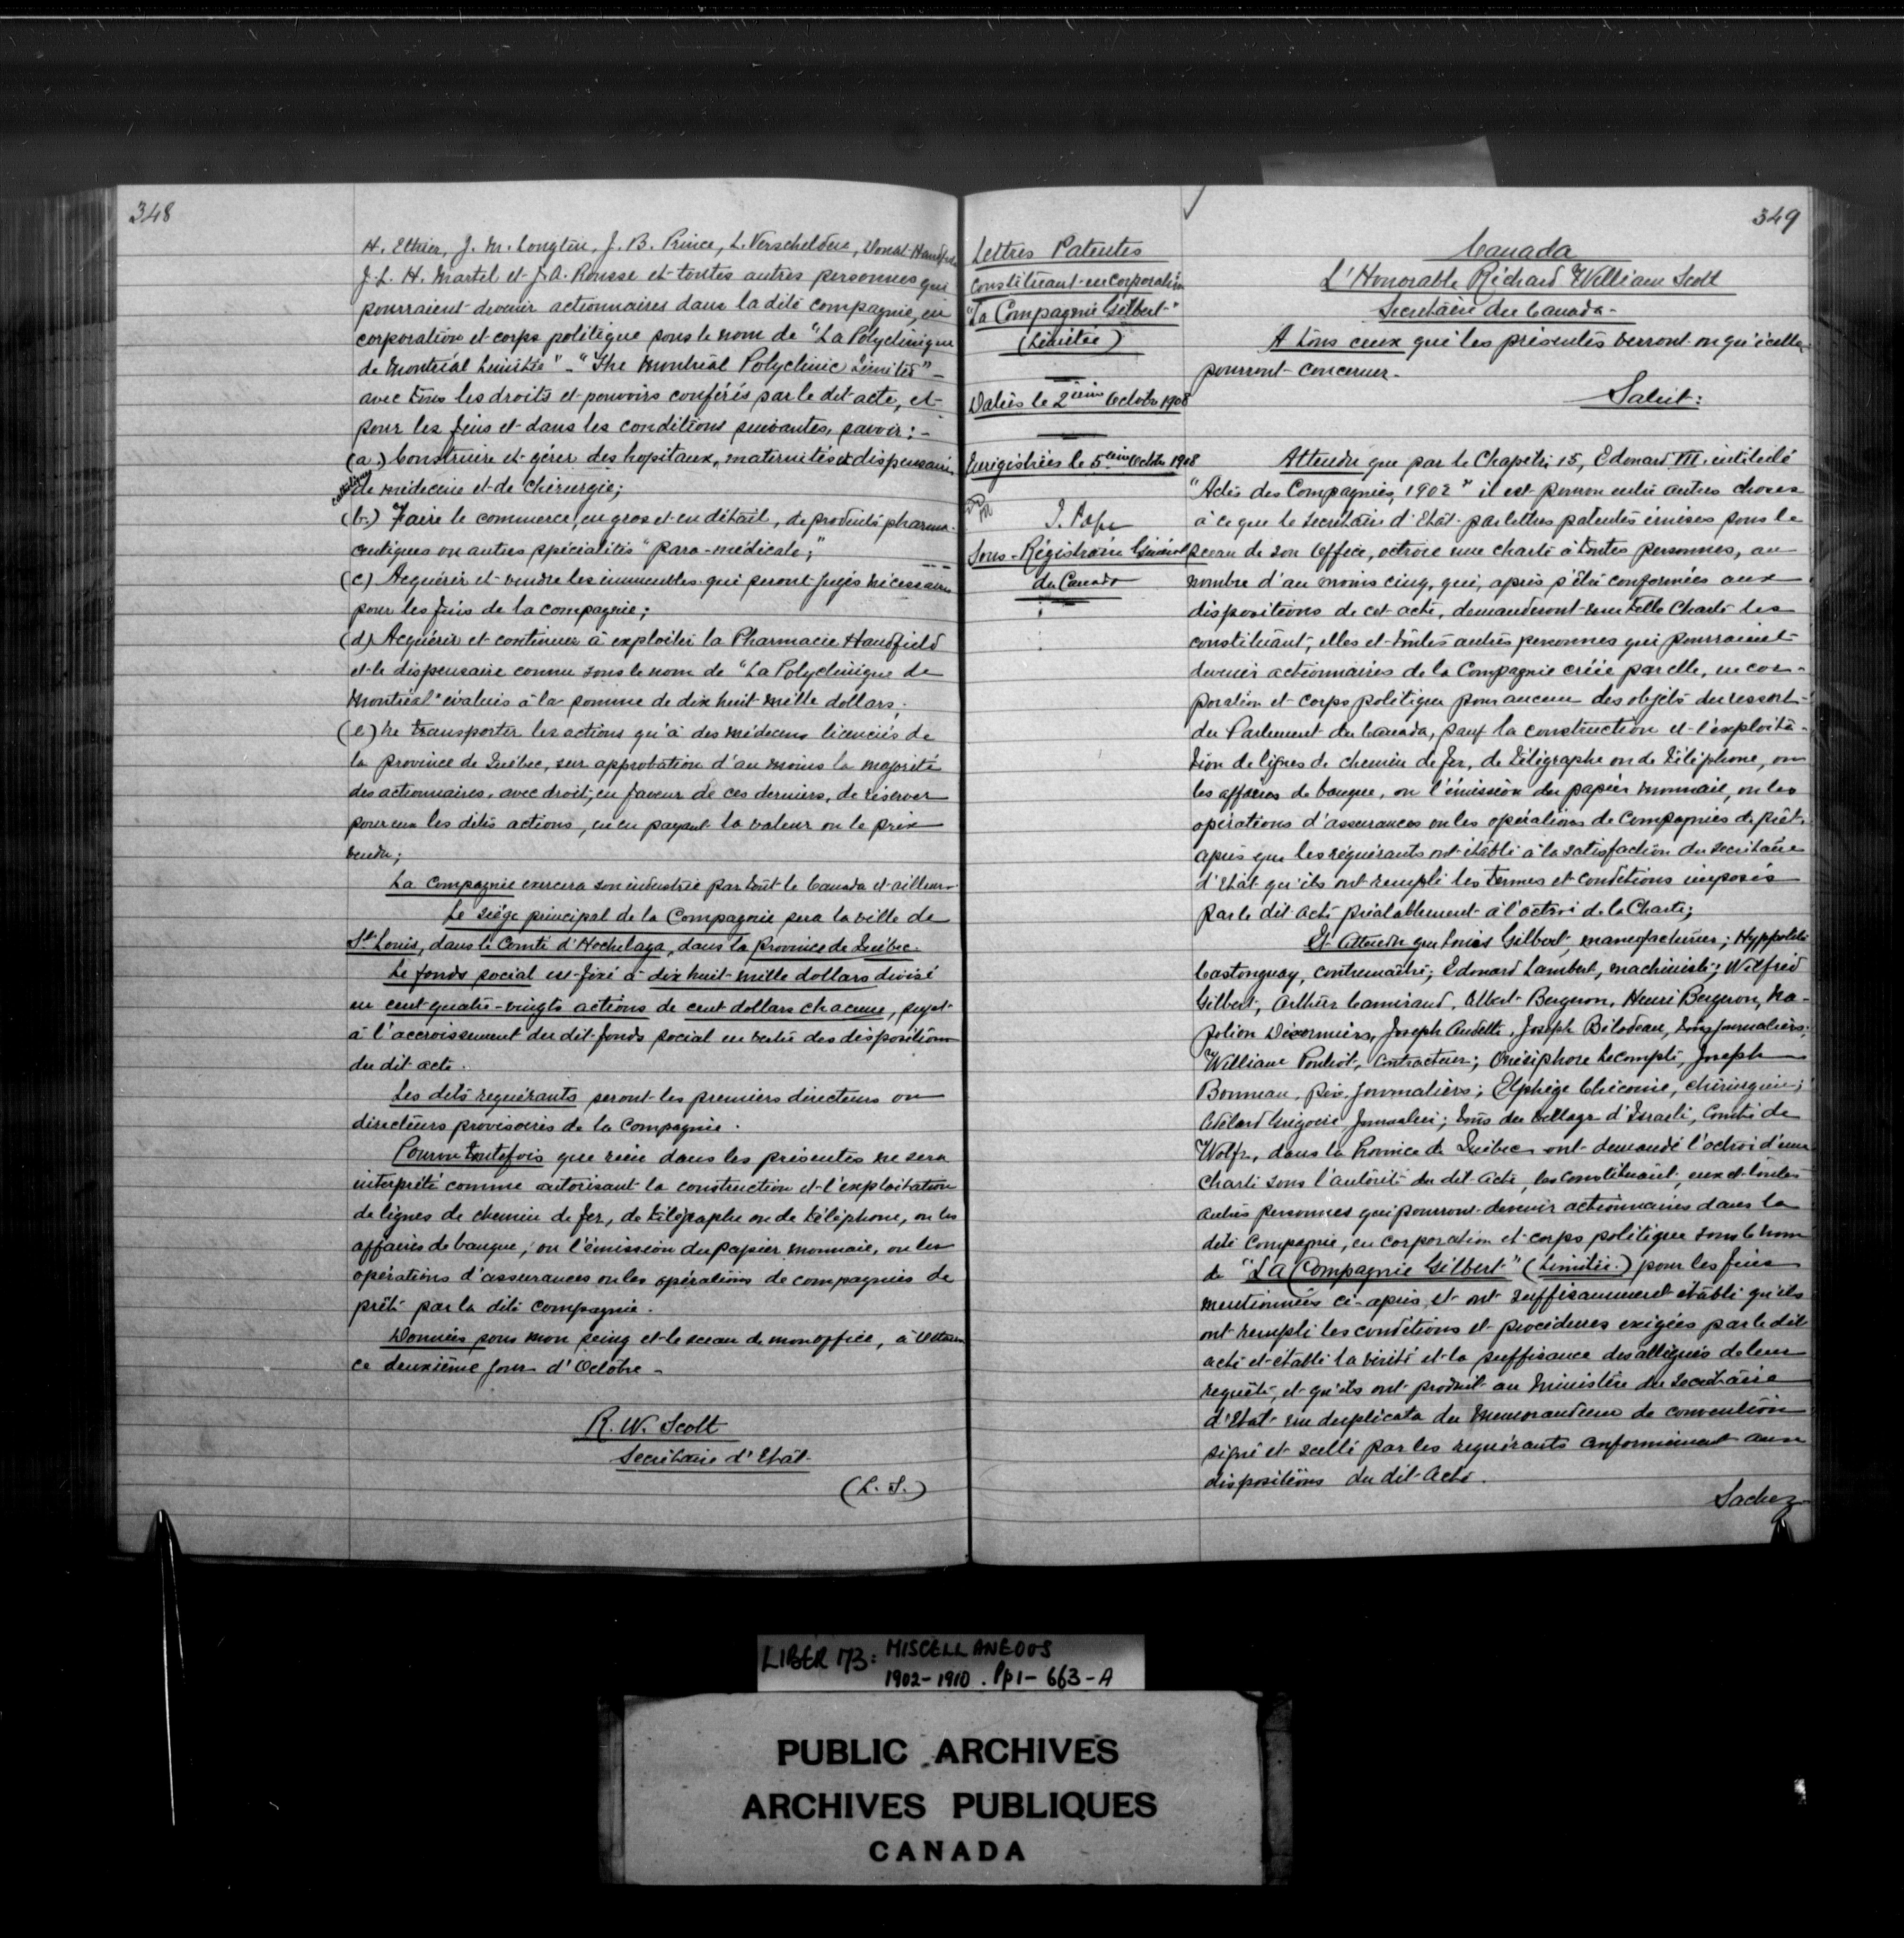 348
H. Ethier, J. M. Longtin, J. B. Prince, L. Verschelden, Donat Handfield
J. L. H. Martel et J. A. Rousse et toutes autres personnes qui
pourraient devenir actionnaires dans la dite compagnie, en
corporation et corps politique sous le nom de "La Polyclinique
de Montréal Limitée" - "The Montreal Polyclinic Limited" -
avec tous les droits et pouvoirs conférés par le dit acte, et
pour les fins et dans les conditions suivantes, savoir: -
(a) Construire et gérer des hopitaux, maternités et dispensaires
de médecine et de chirurgie;
(b.) Faire le commerce, en gros et en détail, de produits pharma-
ceutiques ou autres spécialités "para-médicale;"
(c) Acquérir et vendre les immeubles qui seront jugés nécessaires
pour les fins de la compagnie;
(d) Acquérir et continuer à exploiter la Pharmacie Handfield
et le dispensaire connu sous le nom de "La Polyclinique de
Montréal" évalués à la somme de dix huit mille dollars;
(e) Ne transporter les actions qu'à des médecins licenciés de
la province de Québec, sur approbation d'au moins la majorité
des actionnaires, avec droit, en faveur de ces derniers, de réserver
pour eux les dites actions, en en payant la valeur ou le prix
vendu;
La Compagnie exercera son industrie par tout le Canada et ailleurs.
Le siège principal de la Compagnie sera la ville de
St. Louis, dans le Comté d'Hochelaga, dans la province de Québec.
Le fonds social est fixé à dix huit mille dollars divisé
en cent quatre-vingts actions de cent dollars chacune, sujet
à l'accroissement du dit fonds social en vertu des dispositions
du dit acte.
Les dits requérants seront les premiers directeurs ou
directeurs provisoires de la Compagnie.
Pourvu toutefois que rien dans les présentes ne sera
interprété comme autorisant la construction et l'exploitation
de lignes de chemin de fer, de télégraphe ou de téléphone, ou les
affaires de banque, ou l'émission du papier monnaie, ou les
opérations d'assurances ou les opérations de compagnies de
prêt par la dite compagnie.
Données sous mon seing et le sceau de mon office, à Ottawa
ce deuxième jour d'Octobre -
R. W. Scott
Secrétaire d'Etat.
(L. S.)
Lettres Patentes
constituant en corporation
"La Compagnie Gilbert"
(Limitée)
Datées le 2ième Octobre 1908
Enregistrées le 5ième Octobre 1908
J. Pope
Sous-Régistraire Général
du Canada
349
Canada
L'Honorable Richard William Scott
Secrétaire du Canada -
A tous ceux qui les présentes verront ou qu'icelles
pourront concerner -
Salut:
Attendu que par le Chapitre 15, Edouard VII, intitulé
"Actes des Compagnies, 1902" il est pourvu entre autres choses
à ce que le Secrétaire d'Etat par lettres patentes émises sous le
sceau de son Office, octroie une charte à toutes personnes, au
nombre d'au moins cinq, qui, après s'être conformées aux
dispositions de cet acte, demanderont une telle Charte les
constituant, elles et toutes autres personnes qui pourraient
devenir actionnaires de la Compagnie créée par elle, en cor-
poration et corps politique pour aucun des objets du ressort
du Parlement du Canada, sauf la construction et l'exploita-
tion de lignes de chemin de fer, de télégraphe ou de téléphone, ou
les affaires de banque, ou l'émission du papier monnaie, ou les
opérations d'assurances ou les opérations de Compagnies de prêt,
après que les réquérants ont établi à la satisfaction du Secrétaire
d'Etat qu'ils ont rempli les termes et conditions imposés
par le dit acte préalablement à l'octroi de la Charte;
Et Attendu que Louis Gilbert, manufacturier; Hyppolite
Castonguay, contremaître; Edouard Lambert, machiniste; Wilfrid
Gilbert, Arthur Camirand, Albert Bergeron, Henri Bergeron, Na-
poléon Désormiers, Joseph Audette, Joseph Bilodeau, tous journaliers;
William Pouliot, Contracteur; Onésiphore Lecompte, Joseph
Bonneau, Jos. journaliers; Elphège Chicoine, chirurgien;
Adélard Grégoire Journalier; tous du village d'Israeli, Comté de
Wolfe, dans la Province de Québec ont demandé l'octroi d'une
Charte sous l'autorité du dit Acte, les constituant, eux et toutes
autres personnes qui pourront devenir actionnaires dans la
dite Compagnie, en corporation et corps politique sous le nom
de "La Compagnie Gilbert" (Limitée.) pour les fins
mentionnées ci-après, et ont suffisamment établi qu'ils
ont rempli les conditions et procédures exigées par le dit
acte et établi la vérité et la suffisance des allégués de leur
requête, et qu'ils ont produit au Ministère du Secrétaire
d'Etat un duplicata du Memorandum de convention
signé et scellé par les requérants conformément aux
dispositions du dit Acte.
Sachez
LIBER 173: MISCELLANEOUS
1902-1910. Pp 1-663-A
PUBLIC ARCHIVES
ARCHIVES PUBLIQUES
CANADA